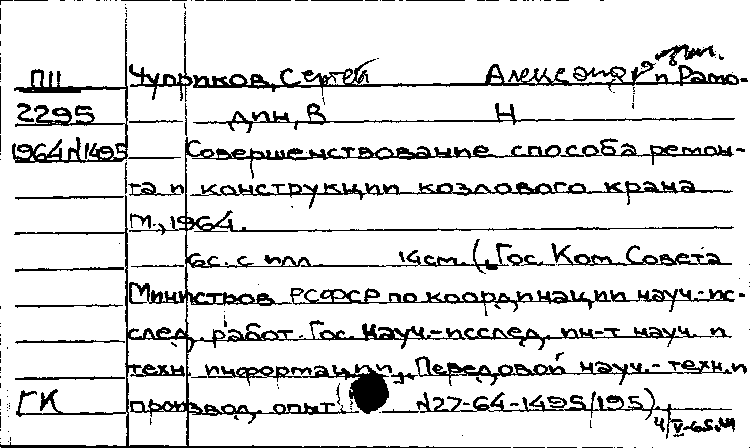 ПII Чуприков, Сергей Александрович и Рамо-
2295 дин, В Н
1964 N1495 Совершенствование способа ремон-
та и конструкции козлового крана
М., 1964.
6с. с илл 14см. (Гос. Ком. Совета
Министров РСФСР по координации науч.-ис-
след. работ. Гос. науч.-исслед. ин-т науч. и
техн. информации. Передовой науч.-техн. и
ГК производ. опыт N27-64-1495/195).